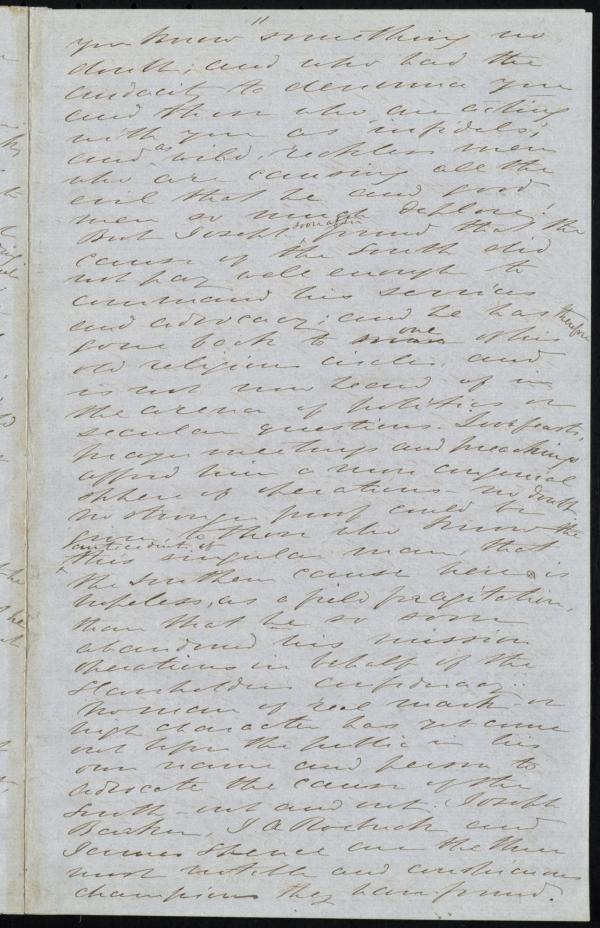 you know "something no
doubt; and who had the
audacity to denounce you
and those who are acting
with you as 'infidels;'
and as wild, reckless men
who are causing all the
evil that he and good
men so much deplore!
But Joseph soon again found that the
cause of the South did
not pay well enough to
command his services
and advocacy; and he has therefore
gone back to one of his
old religious circles, and
is not now heard of in
the arena of politics or
secular questions. Love feasts,
prayer meetings and preachings
afford him a more congenial
sphere of operations - no doubt
no stronger proof could be
given to those who know the
antecedents of
this singular man, that
the Southern cause here is
hopeless, as a field for agitation,
than that he so soon
abandoned his mission
operations in behalf of the
slaveholders confederacy.
No man of real mark or
high character has yet come
out upon the public in his
own name and person to
advocate the cause of the
South - out and out. Joseph
Barker, J A Roebuck and
James Spence are the three
most notable and
champions they have found.